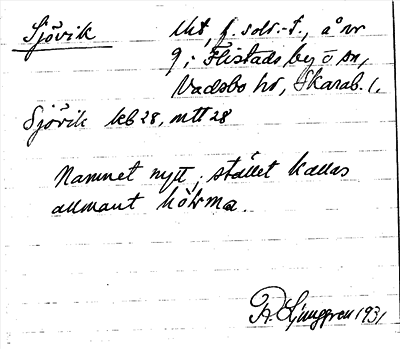 Sjövik lht, f. sold.-t., å nr
9, i Flistads by o sn,
Vadsbo hd, Skarab. l.
Sjövik kb 28, mtt 28
Namnet nytt; stället kallas
allmänt
R. Ljunggren 1931